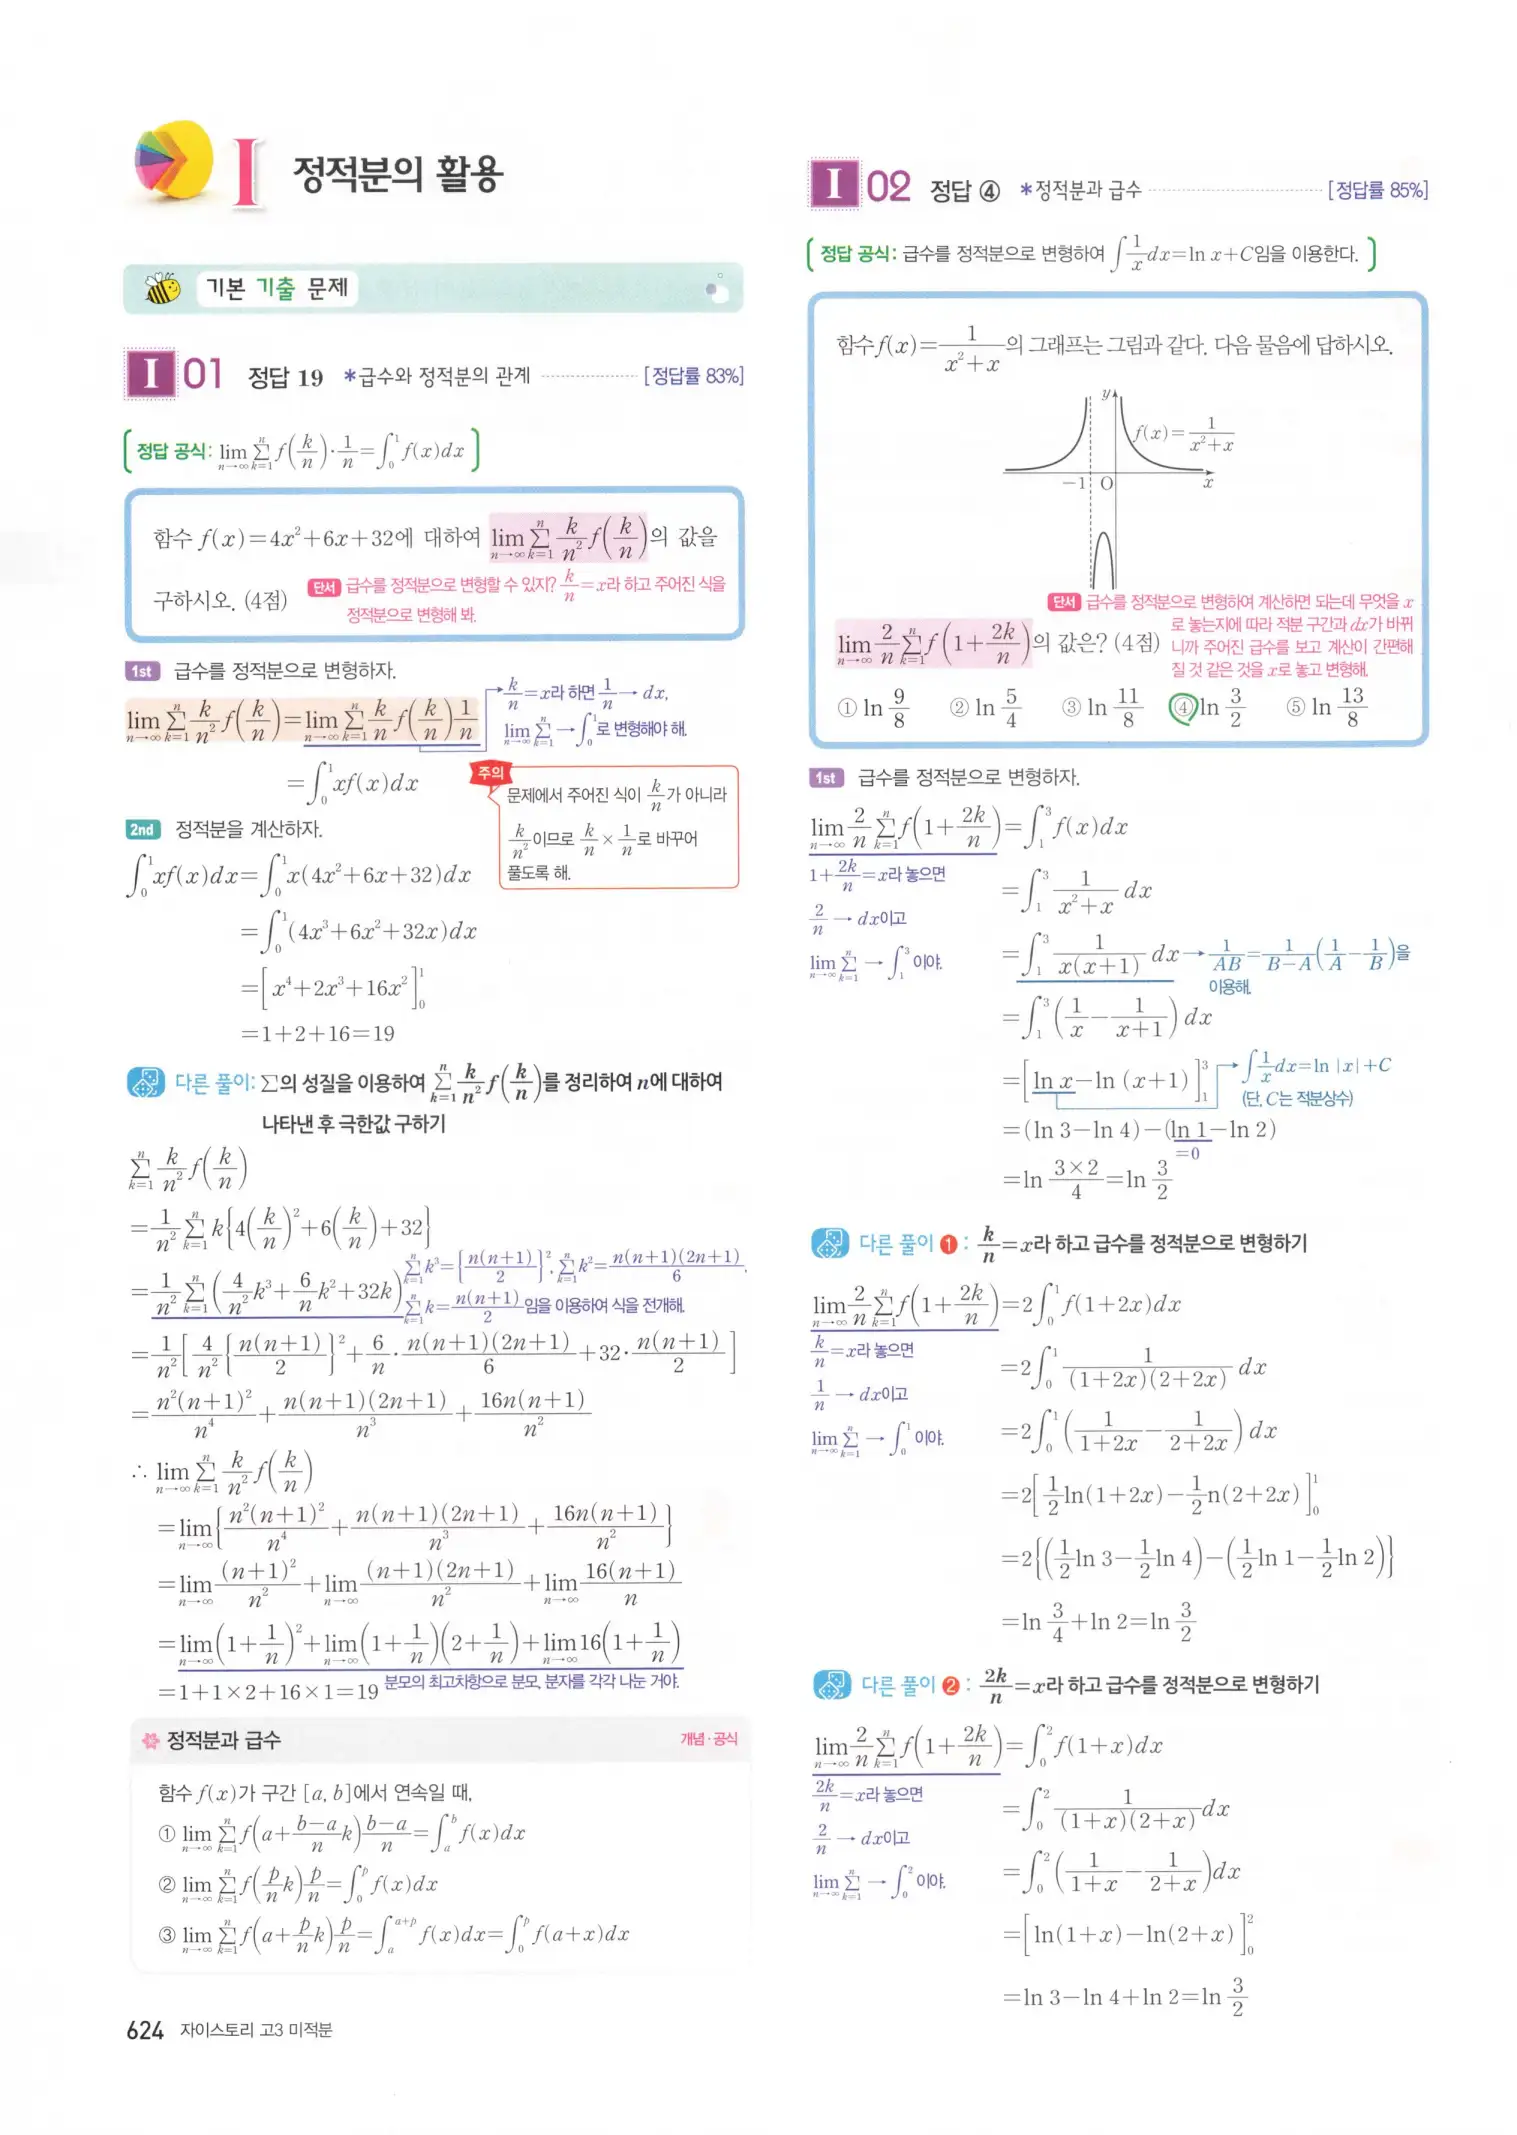 I 정적분의 활용
기본 기출 문제
I 01 정답 19 *급수와 정적분의 관계 [정답률 83%]
정답 공식: lim_{n→∞} Σ_{k=1}^{n} f(k/n)·1/n=∫_0^1 f(x)dx
함수 f(x)=4x²+6x+32에 대하여 lim_{n→∞} Σ_{k=1}^{n} k/n² f(k/n)의 값을
구하시오. (4점)
단서 급수를 정적분으로 변형할 수 있지? k/n=x라 하고 주어진 식을
정적분으로 변형해 봐.
1st 급수를 정적분으로 변형하자.
lim_{n→∞} Σ_{k=1}^{n} k/n² f(k/n)=lim_{n→∞} Σ_{k=1}^{n} k/n f(k/n) 1/n
k/n=x라 하면 1/n → dx,
lim_{n→∞} Σ_{k=1}^{n} → ∫_0^1로 변형해야 해.
=∫_0^1 xf(x)dx
주의
문제에서 주어진 식이 k/n가 아니라
k/n²이므로 k/n × 1/n로 바꾸어
풀도록 해.
2nd 정적분을 계산하자.
∫_0^1 xf(x)dx=∫_0^1 x(4x²+6x+32)dx
=∫_0^1 (4x³+6x²+32x)dx
=[x⁴+2x³+16x²]_0^1
=1+2+16=19
다른 풀이: Σ의 성질을 이용하여 Σ_{k=1}^{n} k/n² f(k/n)를 정리하여 n에 대하여
나타낸 후 극한값 구하기
Σ_{k=1}^{n} k/n² f(k/n)
=1/n² Σ_{k=1}^{n} k{4(k/n)²+6(k/n)+32}
=1/n² Σ_{k=1}^{n} (4/n² k³+6/n k²+32k)
Σ_{k=1}^{n} k³={n(n+1)/2}², Σ_{k=1}^{n} k²=n(n+1)(2n+1)/6,
Σ_{k=1}^{n} k=n(n+1)/2임을 이용하여 식을 전개해.
=1/n² [4/n² {n(n+1)/2}²+6/n·n(n+1)(2n+1)/6+32·n(n+1)/2]
=n²(n+1)²/n⁴+n(n+1)(2n+1)/n³+16n(n+1)/n²
∴ lim_{n→∞} Σ_{k=1}^{n} k/n² f(k/n)
=lim_{n→∞} {n²(n+1)²/n⁴+n(n+1)(2n+1)/n³+16n(n+1)/n²}
=lim_{n→∞} (n+1)²/n²+lim_{n→∞} (n+1)(2n+1)/n²+lim_{n→∞} 16(n+1)/n
=lim_{n→∞} (1+1/n)²+lim_{n→∞} (1+1/n)(2+1/n)+lim_{n→∞} 16(1+1/n)
=1+1×2+16×1=19 분모의 최고차항으로 분모, 분자를 각각 나눈 거야.
정적분과 급수 개념·공식
함수 f(x)가 구간 [a, b]에서 연속일 때,
① lim_{n→∞} Σ_{k=1}^{n} f(a+(b-a)/n k)(b-a)/n=∫_a^b f(x)dx
② lim_{n→∞} Σ_{k=1}^{n} f(p/n k)p/n=∫_0^p f(x)dx
③ lim_{n→∞} Σ_{k=1}^{n} f(a+p/n k)p/n=∫_a^{a+p} f(x)dx=∫_0^p f(a+x)dx
624 자이스토리 고3 미적분
I 02 정답 ④ *정적분과 급수 [정답률 85%]
정답 공식: 급수를 정적분으로 변형하여 ∫1/x dx=ln x+C임을 이용한다.
함수 f(x)=1/(x²+x)의 그래프는 그림과 같다. 다음 물음에 답하시오.
y
f(x)=1/(x²+x)
-1 O x
단서 급수를 정적분으로 변형하여 계산하면 되는데 무엇을 x
로 놓는지에 따라 적분 구간과 dx가 바뀌
니까 주어진 급수를 보고 계산이 간편해
질 것 같은 것을 x로 놓고 변형해.
lim_{n→∞} 2/n Σ_{k=1}^{n} f(1+2k/n)의 값은? (4점)
① ln 9/8 ② ln 5/4 ③ ln 11/8 ④ ln 3/2 ⑤ ln 13/8
1st 급수를 정적분으로 변형하자.
lim_{n→∞} 2/n Σ_{k=1}^{n} f(1+2k/n)=∫_1^3 f(x)dx
1+2k/n=x라 놓으면
2/n → dx이고
lim_{n→∞} Σ_{k=1}^{n} → ∫_1^3이야.
=∫_1^3 1/(x²+x) dx
=∫_1^3 1/(x(x+1)) dx → 1/AB=1/(B-A)(1/A-1/B)을
이용해.
=∫_1^3 (1/x-1/(x+1)) dx
=[ln x-ln (x+1)]_1^3 → ∫1/x dx=ln |x|+C
(단, C는 적분상수)
=(ln 3-ln 4)-(ln 1-ln 2)
=0
=ln (3×2)/4=ln 3/2
다른 풀이 ❶ : k/n=x라 하고 급수를 정적분으로 변형하기
lim_{n→∞} 2/n Σ_{k=1}^{n} f(1+2k/n)=2∫_0^1 f(1+2x)dx
k/n=x라 놓으면
1/n → dx이고
lim_{n→∞} Σ_{k=1}^{n} → ∫_0^1이야.
=2∫_0^1 1/((1+2x)(2+2x)) dx
=2∫_0^1 (1/(1+2x)-1/(2+2x)) dx
=2[1/2 ln(1+2x)-1/2 n(2+2x)]_0^1
=2{(1/2 ln 3-1/2 ln 4)-(1/2 ln 1-1/2 ln 2)}
=ln 3/4+ln 2=ln 3/2
다른 풀이 ❷ : 2k/n=x라 하고 급수를 정적분으로 변형하기
lim_{n→∞} 2/n Σ_{k=1}^{n} f(1+2k/n)=∫_0^2 f(1+x)dx
2k/n=x라 놓으면
2/n → dx이고
lim_{n→∞} Σ_{k=1}^{n} → ∫_0^2이야.
=∫_0^2 1/((1+x)(2+x)) dx
=∫_0^2 (1/(1+x)-1/(2+x))dx
=[ln(1+x)-ln(2+x)]_0^2
=ln 3-ln 4+ln 2=ln 3/2